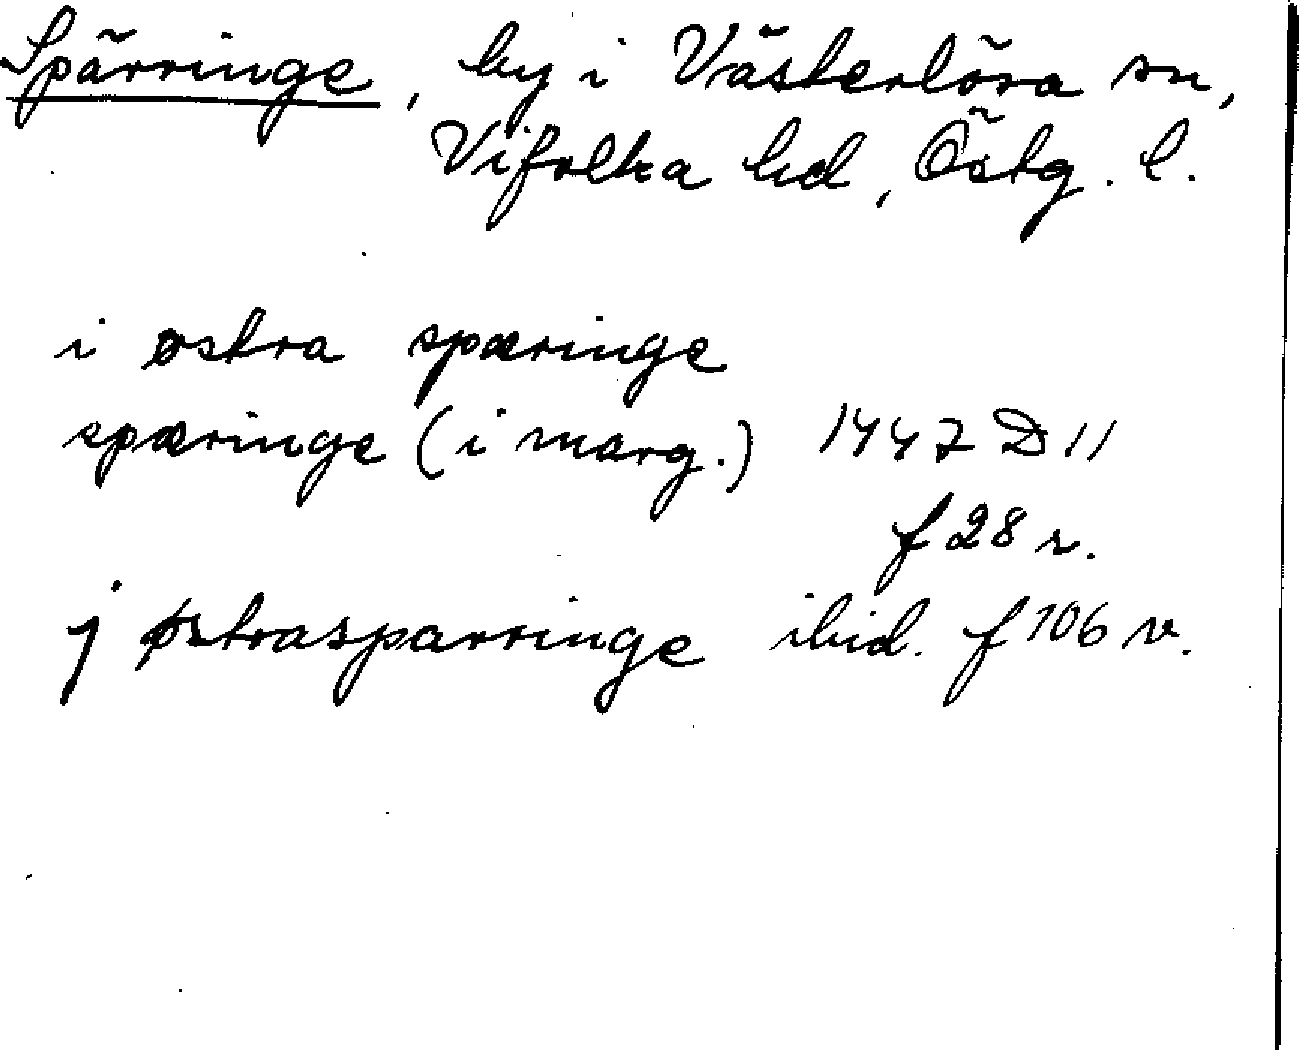 Spärringe, by i Västerlösa sn,
Vifolka hd, Östg. l.
i østra spæringe
spæringe (i marg.) 1447 D 11
f 28 r.
j østrasparringe ibid. f 106 v.